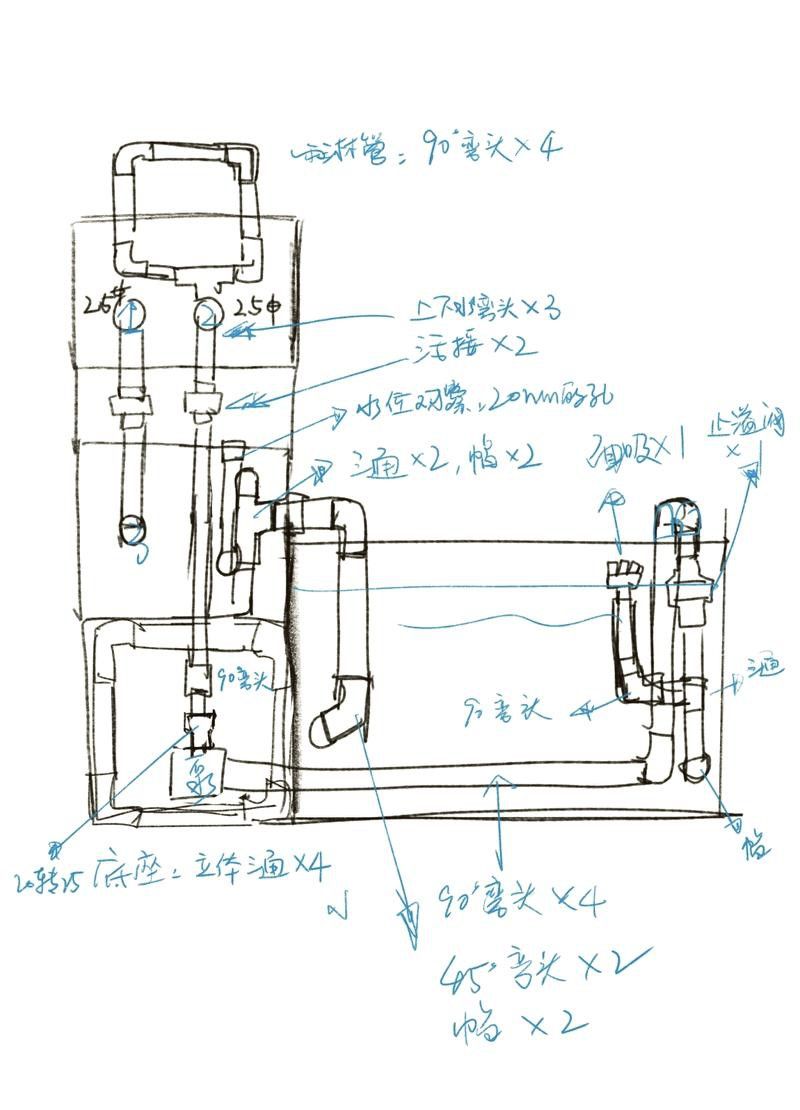 雨淋管：90°弯头×4
25# 1 2 25中
上下水弯头×3
活接×2
水位观察：20mm的孔
三通×2，帽×2
面吸×1
止溢阀×1
3
90弯头
三通
90弯头
泵
帽
20转25
底座：立体三通×4
90°弯头×4
45°弯头×2
帽×2